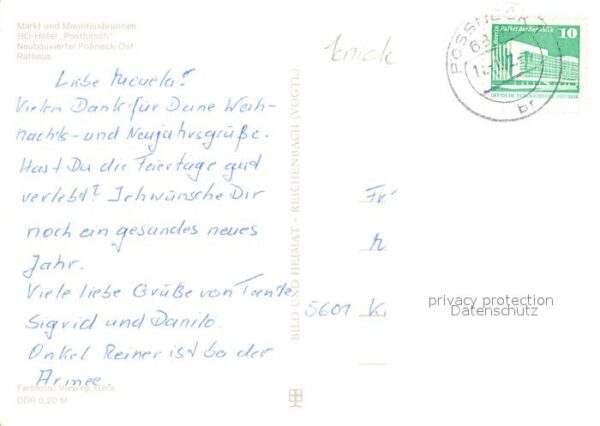 Markt und Mauritiusbrunnen
HO-Hotel „Posthirsch"
Neubauviertel Pößneck-Ost
Rathaus
knick
Liebe Manuela!
Vielen Dank für Deine Weih-
nachts- und Neujahrsgrüße.
Hast Du die Feiertage gut
verlebt? Ich wünsche Dir
noch ein gesundes neues
Jahr.
Viele liebe Grüße von Tante
Sigrid und Danilo.
Onkel Reiner ist bei der
Armee.
Farbfoto: Vieweg, Gera
DDR 0,20 M
BILD UND HEIMAT · REICHENBACH (VOGTL)
PÖSSNECK
br
10
Berlin Palast der Republik
Fr
5601 K
privacy protection
Datenschutz